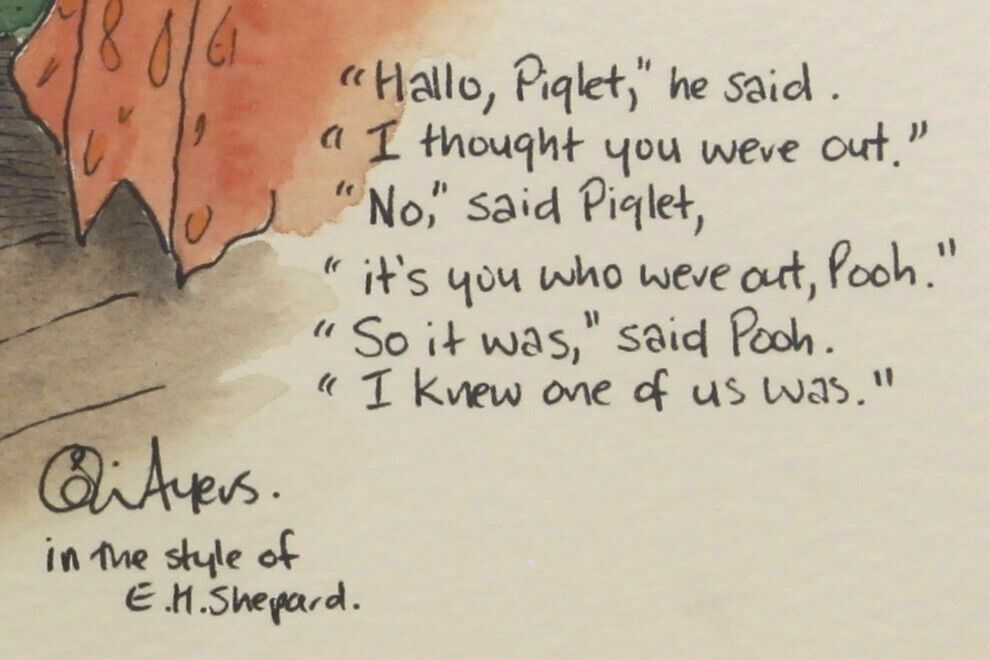 "Hallo, Piglet," he said.
"I thought you were out."
"No," said Piglet,
"it's you who were out, Pooh."
"So it was," said Pooh.
"I knew one of us was."
Oli Ayers.
in the style of
E.H.Shepard.